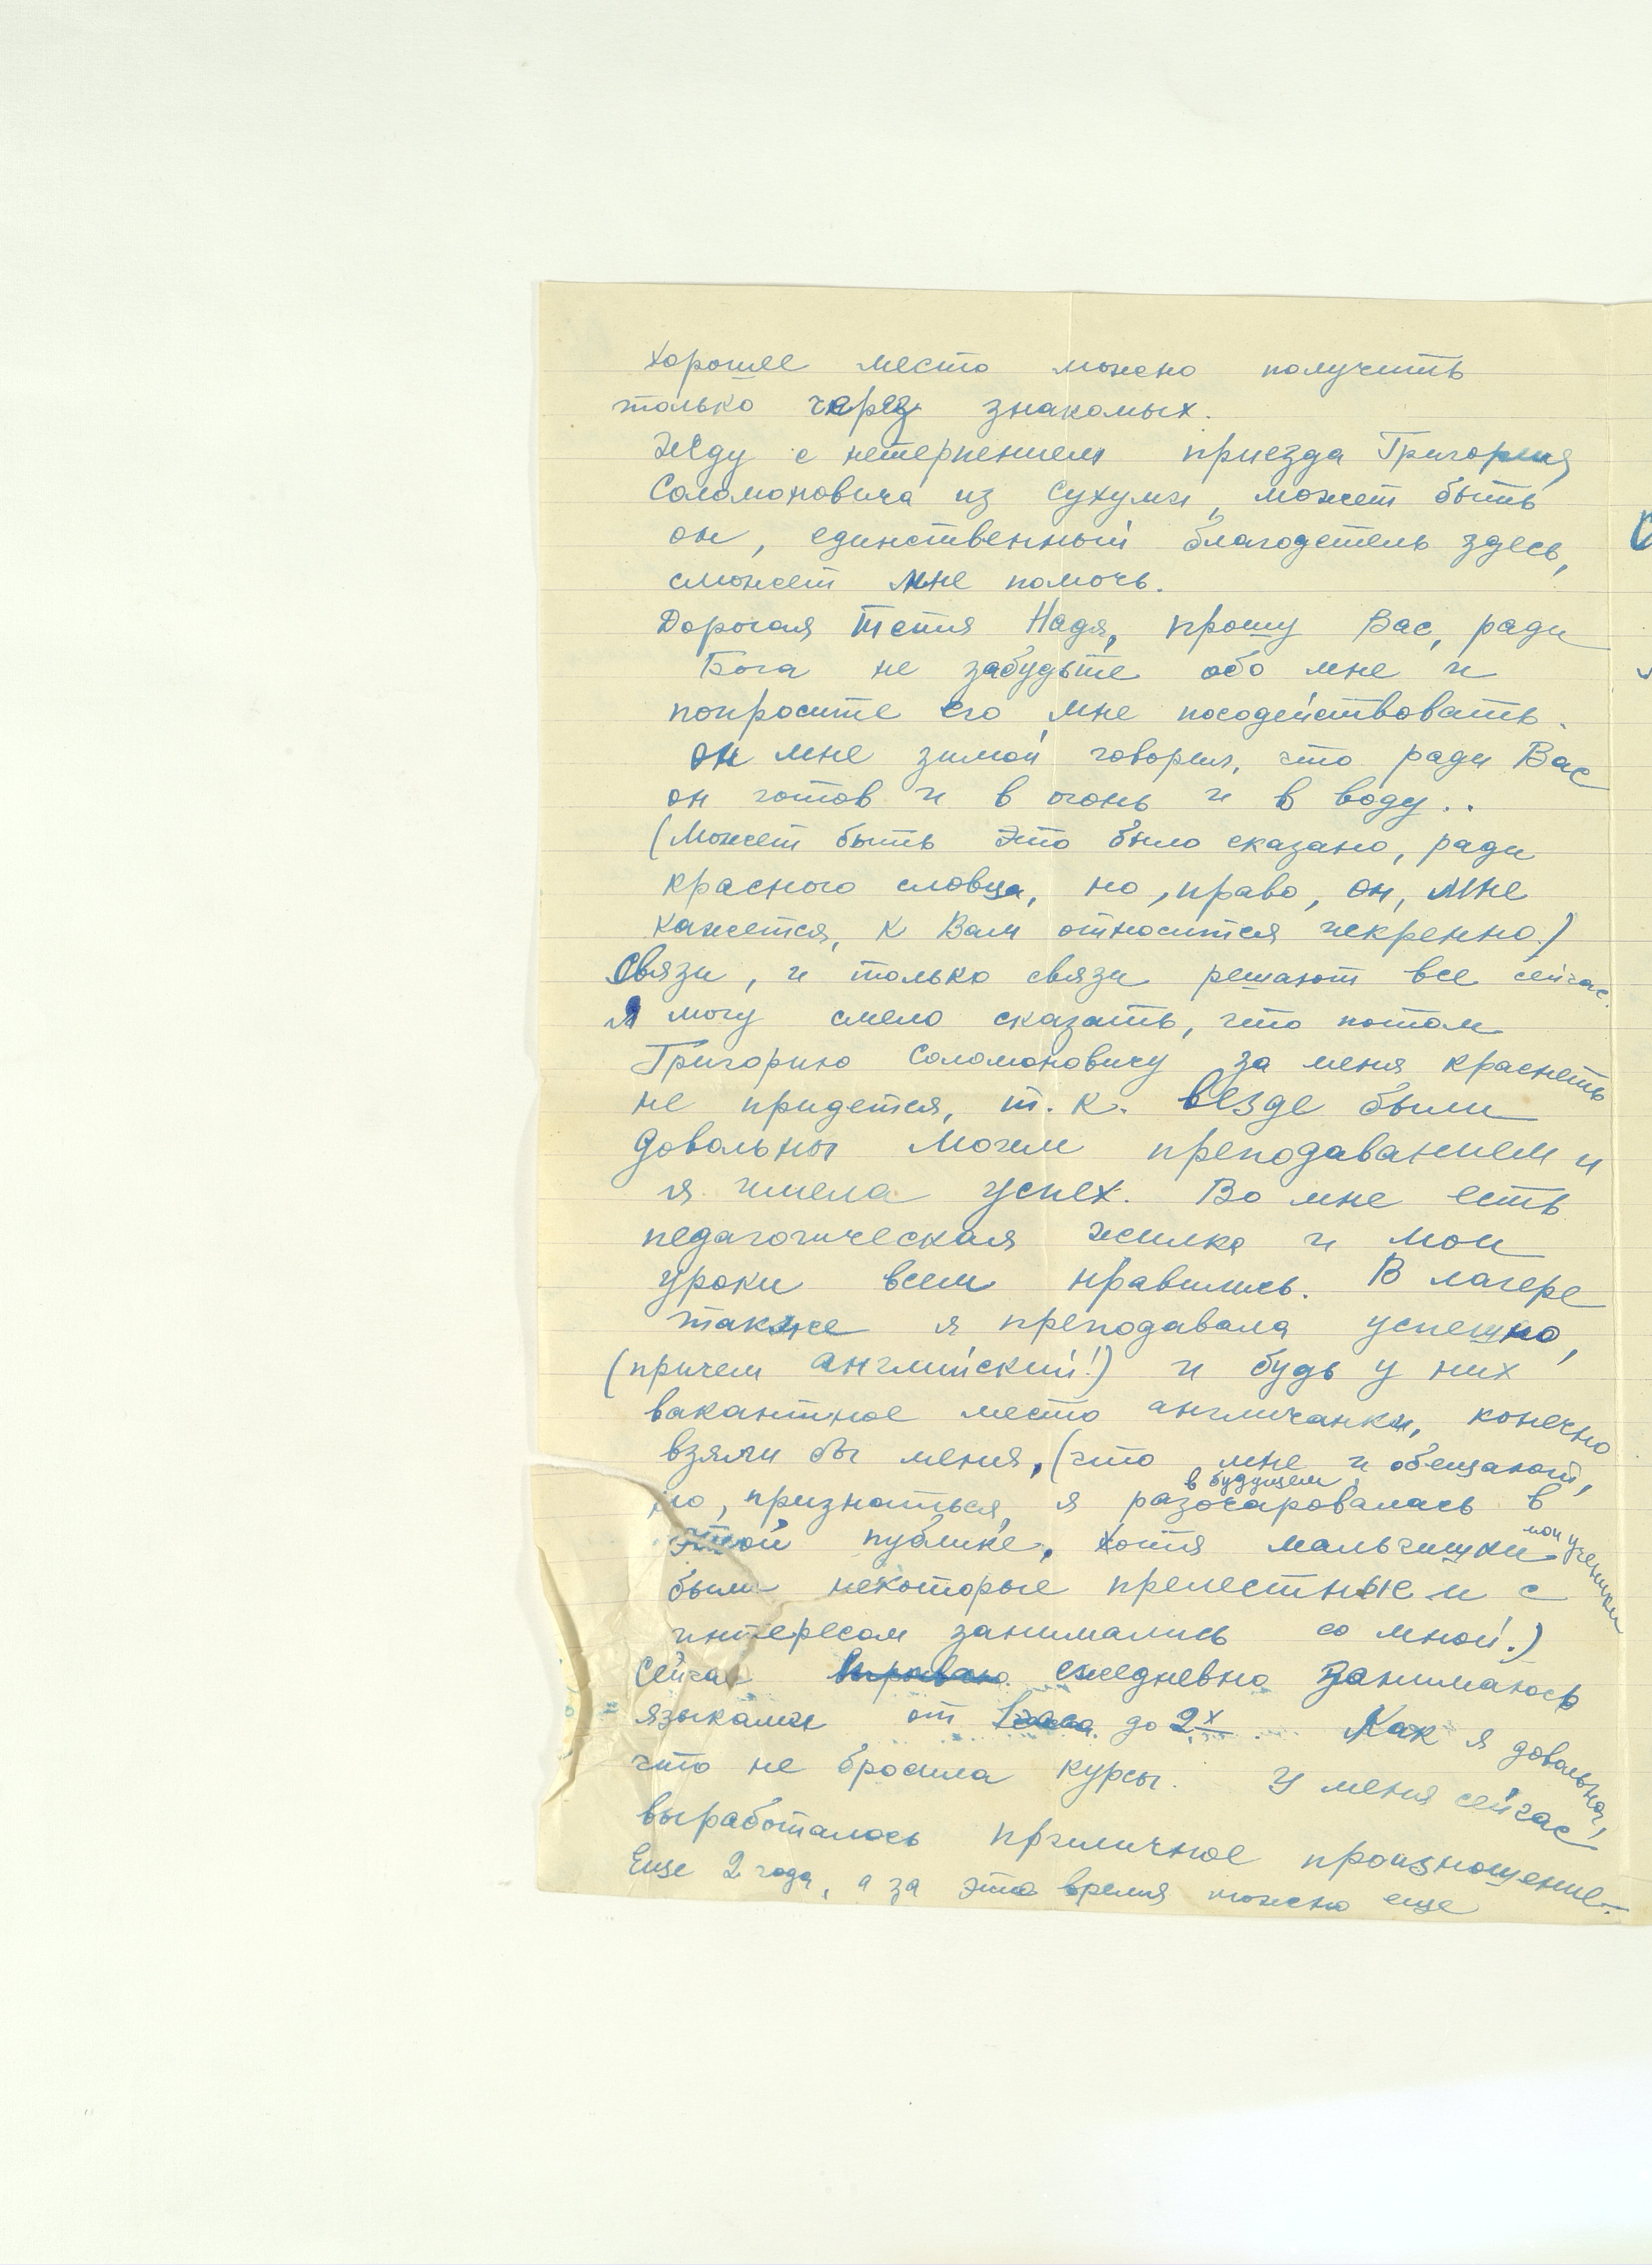 хорошее место можно получить
только через знакомых.
Жду с нетерпением приезда Григория
Соломоновича из Сухуми, может быть
он, единственный благодетель здесь,
сможет мне помочь.
Дорогая тетя Надя, прошу Вас, ради
Бога не забудьте обо мне и
попросите его мне посодействовать.
он мне зимой говорил, что ради Вас
он готов и в огонь и в воду..
(Может быть это было сказано, ради
красного словца, но, право, он, мне
кажется, к Вам относится искренно.)
Связи, и только связи решают все сейчас.
Я могу смело сказать, что потом
Григорию Соломоновичу за меня краснеть
не придется, т.к. везде были
довольны моим преподаванием и
я имела успех. Во мне есть
педагогическая жилка и мои
уроки всем нравились. В лагере
также я преподавала успешно,
(причем английский!) и будь у них
вакантное место англичанки, конечно
взяли бы меня, (что мне и обещают,
в будущем
но, признаться, я разочаровалась в
этой публике, хотя мальчишки мои ученики
были некоторые прелестные и с
интересом занимались со мной.)
Сейчас ежедневно занимаюсь
языками от до 2х. Как я довольна,
что не бросила курсы. У меня сейчас
выработалось приличное произношение.
Еще 2 года, а за это время можно еще